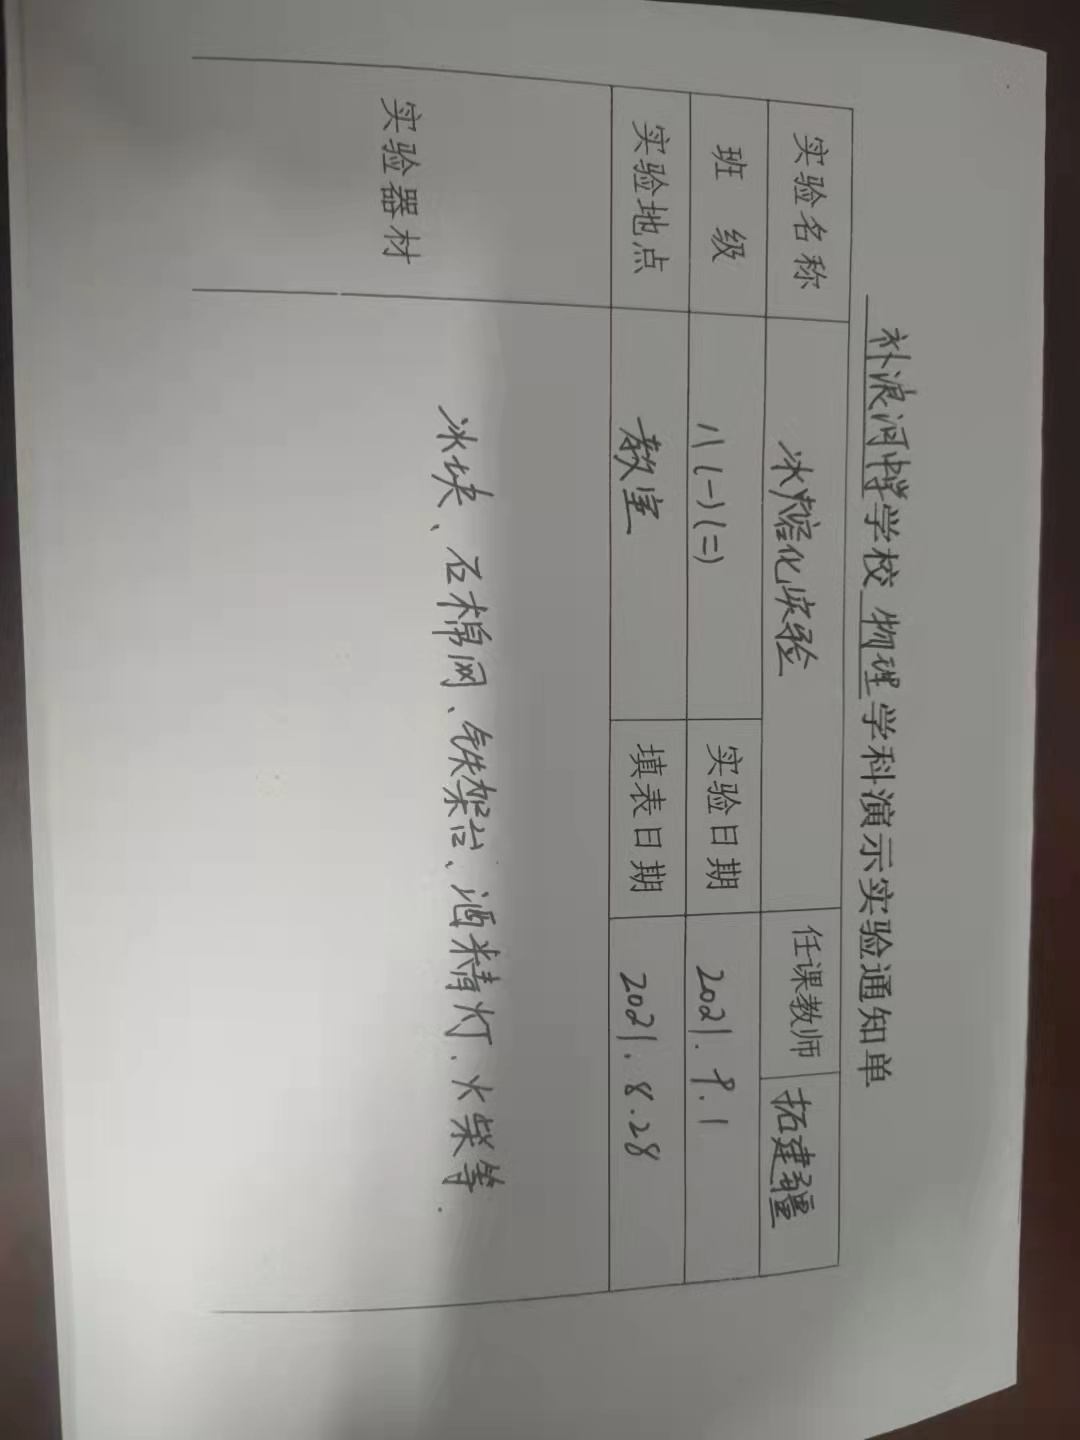 补浪河中学学校物理学科演示实验通知单
实验名称 冰熔化实验 任课教师 拓建疆
班 级 八(一)(二) 实验日期 2021.9.1
实验地点 教室 填表日期 2021.8.28
实验器材 冰块、石棉网、铁架台、酒精灯、火柴等.